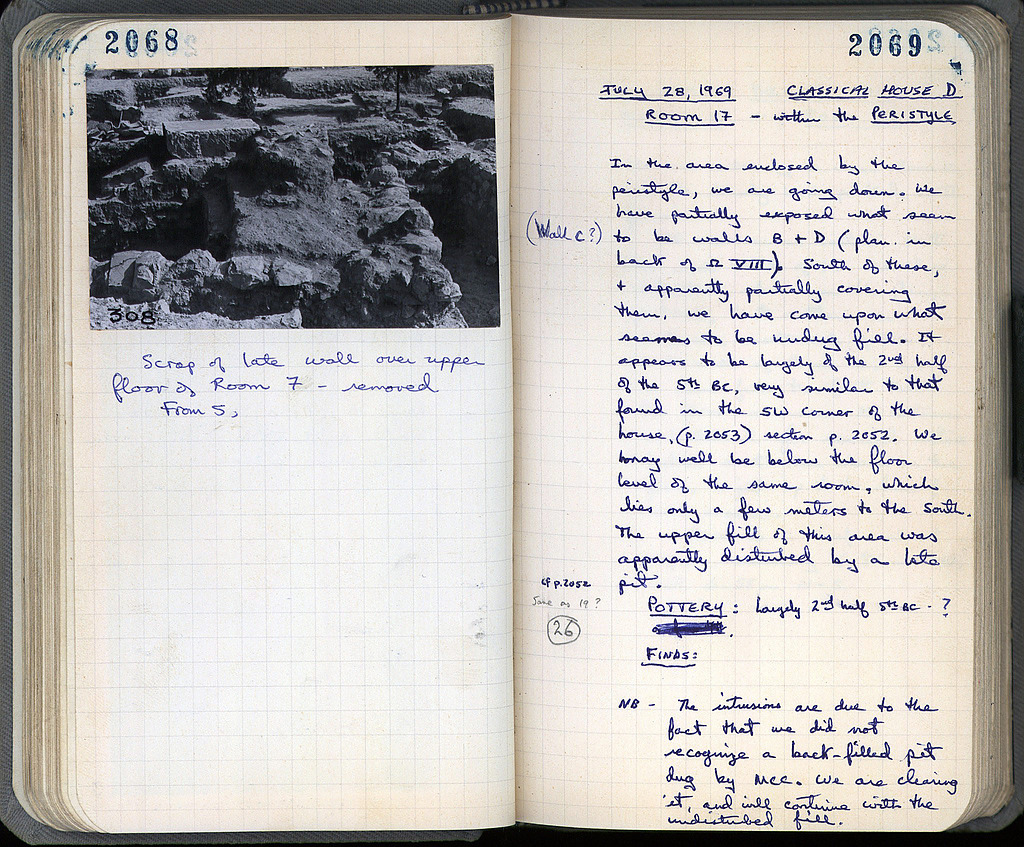 2068
308
Scrap of late wall over upper
floor of Room 7 – removed
From S,
2069
JULY 28, 1969 CLASSICAL HOUSE D
ROOM 17 – within the PERISTYLE
In the area enclosed by the
peristyle, we are going down. We
have partially exposed what seem
(Wall C?)
to be walls B + D (plan in
back of Ω VIII). South of these,
+ apparently partially covering
them, we have come upon what
seems to be undug fill. It
appears to be largely of the 2nd half
of the 5th BC, very similar to that
found in the SW corner of the
house, (p. 2053) section p. 2052. We
may well be below the floor
level of the same room, which
lies only a few meters to the south.
The upper fill of this area was
apparently disturbed by a late
pit.
cf p. 2052
Same as 19?
26
POTTERY: Largely 2nd half 5th BC - ?
FINDS:
NB – The intrusions are due to the
fact that we did not
recognize a back-filled pit
dug by MCC. We are clearing
it, and will continue with the
undisturbed fill.